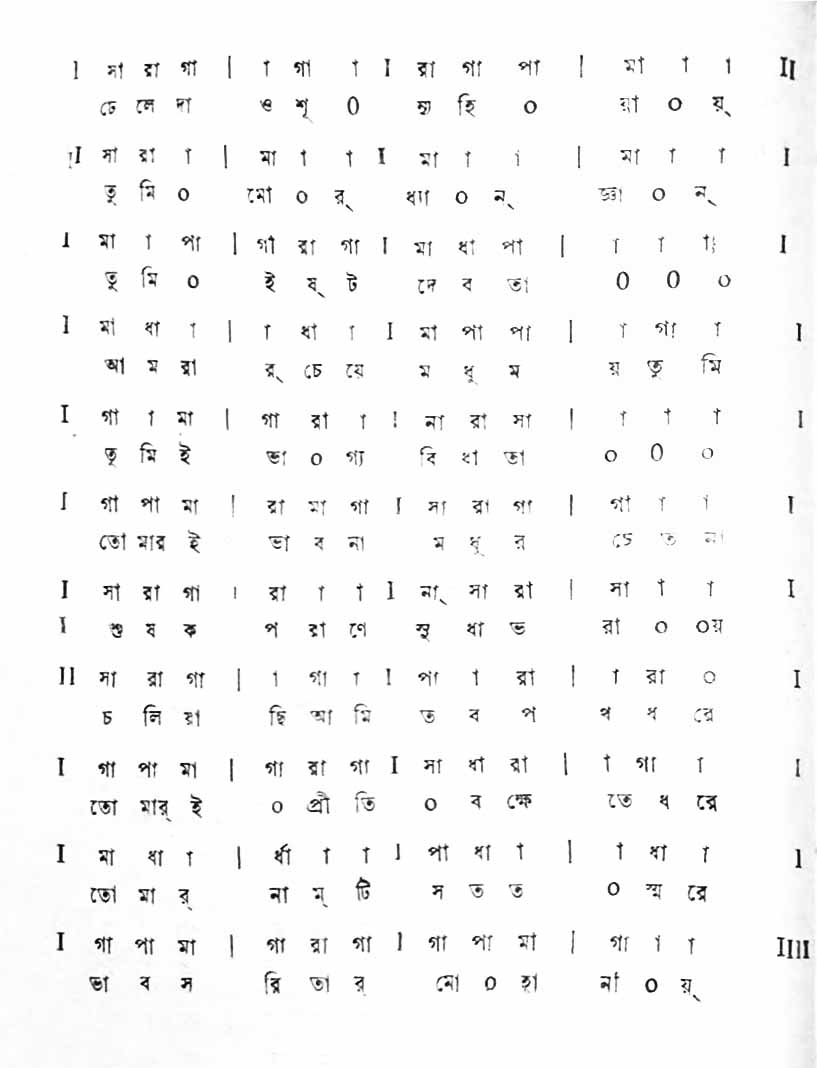 I সা রা গা | া গা া I রা গা পা | মা া া II
ঢে লে দা ও শূ 0 ন্য হি ০ য়া ০ য়্
II সা রা া | মা া া I মা া া | মা া া I
তু মি ০ মো ০ র্ ধ্যা ০ ন্ জ্ঞা ০ ন্
I মা া পা | গা রা গা I মা ধা পা | া া া I
তু মি ০ ই ষ্ ট দে ব তা 0 0 ০
I মা ধা া | া ধা া I মা পা পা | া গা া I
আ ম রা র্ চে য়ে ম ধু ম য় তু মি
I গা া মা | গা রা া I না রা সা | া া া I
তু মি ই ভা ০ গ্য বি ধা তা ০ 0 ০
I গা পা মা | রা মা গা I সা রা গা | গা া া I
তো মার ই ভা ব না ম ধু র চে ত না
I সা রা গা | রা া া I না্ সা রা | সা া া I
I শু ষ ক প রা ণে সু ধা ভ রা ০ ০য়
II সা রা গা | া গা া I পা া রা | া রা ০ I
চ লি য়া ছি আ মি ত ব প থ ধ রে
I গা পা মা | গা রা গা I সা ধা রা | া গা া I
তো মার্ ই ০ প্রী তি ০ ব ক্ষে তে ধ রে
I মা ধা া | র্ধা া া I পা ধা া | া ধা া I
তো মা র্ না ম্ টি স ত ত ০ স্ম রে
I গা পা মা | গা রা গা I গা পা মা | গা া া IIII
ভা ব স রি তার্ মো ০ হা না ০ য়্